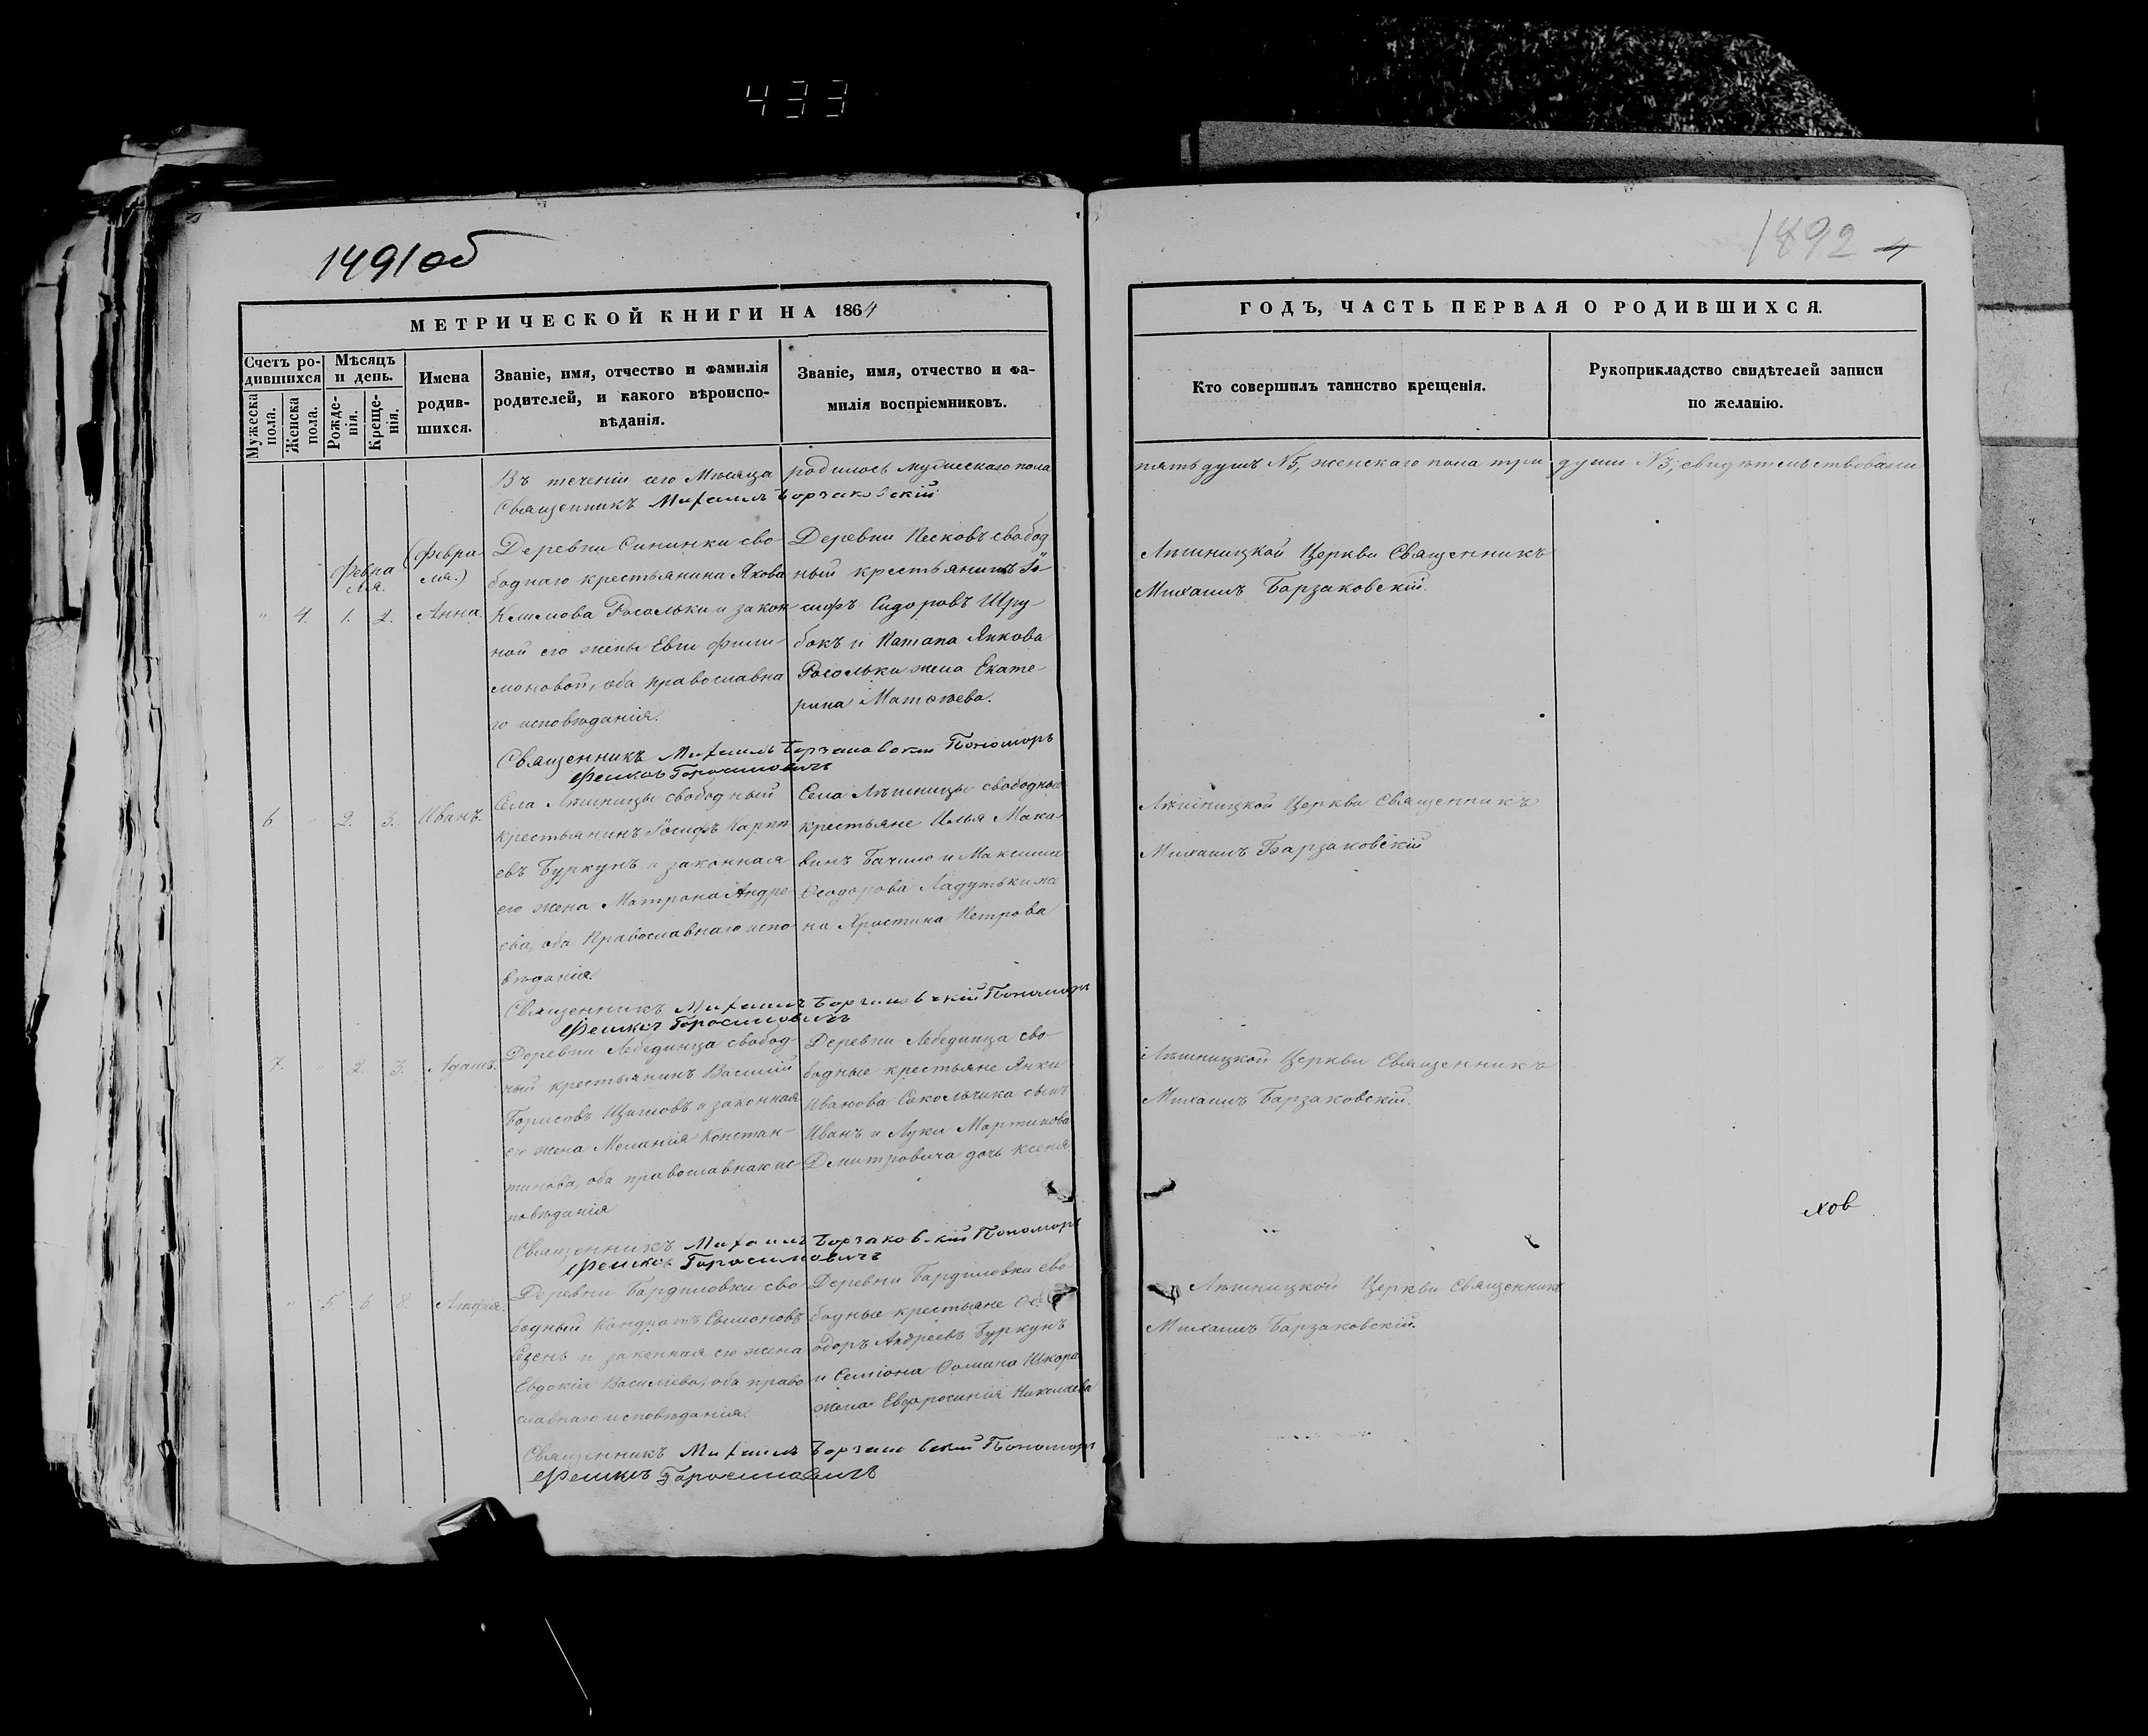 433
1491об
1892 4
МЕТРИЧЕСКОЙ КНИГИ НА 1864
ГОДЪ, ЧАСТЬ ПЕРВАЯ О РОДИВШИХСЯ.
Счетъ ро-
дившихся
Мужеска
пола.
Женска
пола.
Мѣсяцъ
и день.
Рожде-
нія.
Креще-
нія.
Имена
родив-
шихся.
Званіе, имя, отчество и фамилія
родителей, и какого вѣроиспо-
вѣданія.
Званіе, имя, отчество и фа-
милія воспріемниковъ.
Кто совершилъ таинство крещенія.
Рукоприкладство свидѣтелей записи
по желанію.
Въ теченіи сего Мѣсяца родилось мужескаго пола пять душъ №5, женскаго пола три души №3, свидѣтельствовали
Священникъ Михаилъ Борзаковскій
Февра
ля.
(Февра-
ля.)
" 4. 1. 2. Анна.
Деревни Сининки сво-
боднаго крестьянина Якова
Климова Росольки и закон-
ной его жены Евы Фили-
моновой, оба православна
го исповѣданія.
Деревни Песковъ свобод
ный крестьянинъ Іо-
сифъ Сидоровъ Шру-
бокъ и Патапа Янкова
Росольки жена Екате-
рина Матѳѣева.
Лѣшницкой Церкви Священникъ
Михаилъ Барзаковскій.
Священникъ Михаилъ Борзаковскій Пономоръ
Феликсъ Горосимовичъ
6 " 2. 3. Иванъ.
Села Лѣшницы свободный
крестьянинъ Іосифъ Карпи
евъ Буркунъ и законная
его жена Матрона Андре-
ева, оба Православнаго испо-
вѣданія.
Села Лѣшницы свободные
крестьяне Илья Мака-
винъ Бачило и Максима
Ѳеодорова Ладутьки же
на Христина Петрова
Лѣшницкой Церкви Священникъ
Михаилъ Барзаковскій
Священникъ Михаилъ Борзаковскій Пономоръ
Феликсъ Горосимовичъ
7. " 2. 3. Адамъ.
Деревни Лебединца свобод-
ный крестьянинъ Василій
Борисовъ и законная
его жена Меланія Констан-
тинова, оба православнаго ис-
повѣданія
Деревни Лебединца сво-
бодные крестьяне Янки
Иванова Сокольчика сынъ
Иванъ и Луки Мартинова
Дмитровича дочь Ксенія
Лѣшницкой Церкви Священникъ
Михаилъ Барзаковскій.
Священникъ Михаилъ Борзаковскій Пономоръ
Феликсъ Горосимовичъ
" 5 6 8. Агафія.
Деревни Бардиловки сво-
бодный Кондратъ Симоновъ
и законная его жена
Евдокія Василіева, оба право
славнаго исповѣданія.
Деревни Бардиловки сво-
бодные крестьяне Ѳе-
одоръ Андреевъ Буркунъ
и Семіона Ѳомина Шкора
жена Евфросинія Николаева
Лѣшницкой Церкви Священникъ
Михаилъ Барзаковскій.
Священникъ Михаилъ Борзаковскій Пономоръ
Феликсъ Горосимовичъ